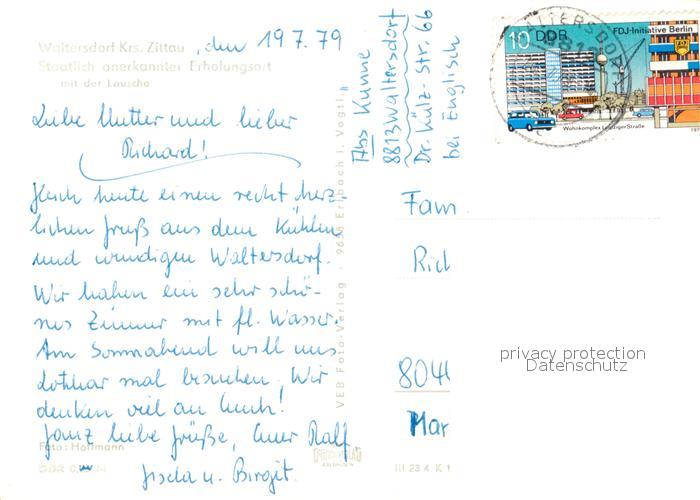 Waltersdorf Krs. Zittau , den 19.7.79
Staatlich anerkannter Erholungsort
mit der Lausche
Liebe Mutter und lieber
Richard!
Auch heute einen recht herz-
lichen Gruß aus dem kühlen
und windigen Waltersdorf.
Wir haben ein sehr schö-
nes Zimmer mit fl. Wasser.
Am Sonnabend will uns
Lothar mal besuchen. Wir
denken viel an Euch!
Ganz liebe Grüße, Euer Ralf
Gisela u. Birgit.
Foto: Hoffmann
DDR
VEB Foto-Verlag · Erlbach i. Vogtl.
Abs Kunne
8813 Waltersdorf
Dr. Külz-Str. 66
bei Englisch
10 DDR
FDJ-Initiative Berlin
Wohnkomplex Leipziger Straße
WALTERSDORF
8813
Fam
Rid
804
Mar
privacy protection
Datenschutz
III 23 4 K 1